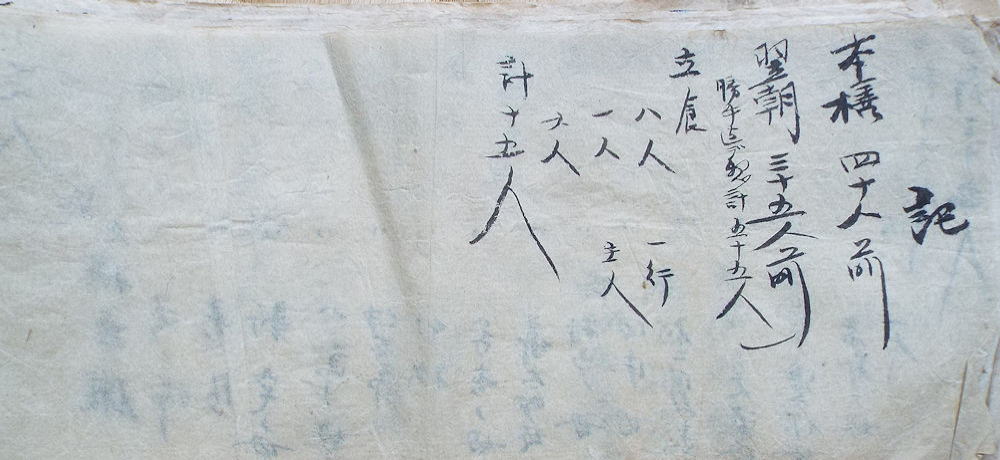 記
本膳 四十人前
翌朝 三十五人前
勝手迄デ惣計五十五人
立食
八人 一行
一人 主人
六人
計十五人